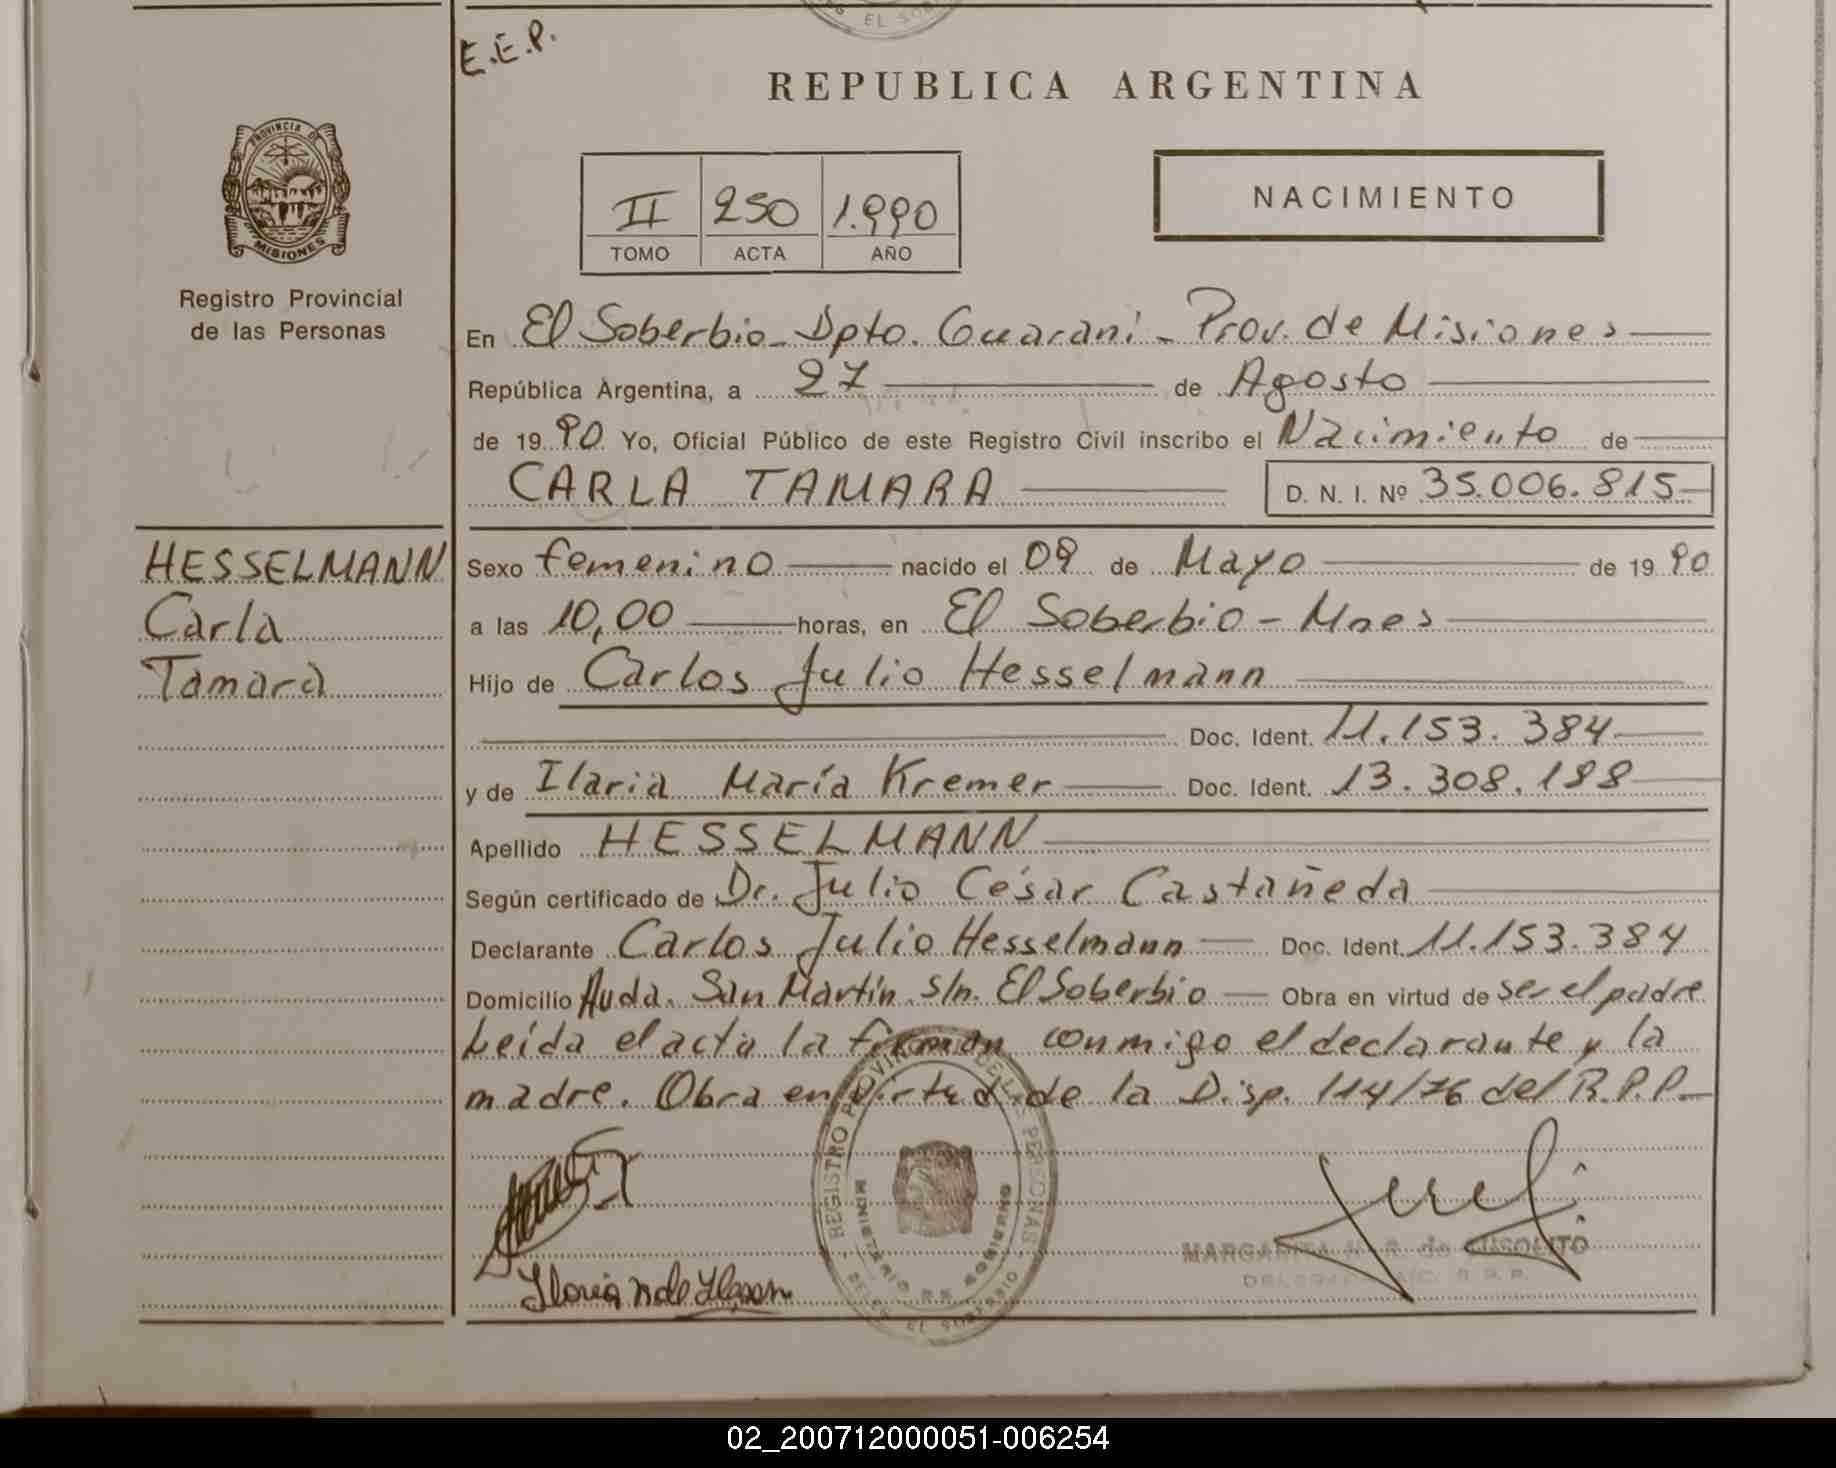 EL SOBER
E.E.P.
REPUBLICA ARGENTINA
PROVINCIA DE
MISIONES
Registro Provincial
de las Personas
II 250 1.990
TOMO ACTA AÑO
NACIMIENTO
En El Soberbio - Dpto. Guaraní - Prov. de Misiones
República Argentina, a 27 de Agosto
de 19 90 Yo, Oficial Público de este Registro Civil inscribo el Nacimiento de
CARLA TAMARA D. N. I. Nº 35.006.815
HESSELMANN
Carla
Tamara
Sexo femenino nacido el 09 de Mayo de 19 90
a las 10,00 horas, en El Soberbio - Mnes
Hijo de Carlos Julio Hesselmann
Doc. Ident. 11.153.384
y de Ilaria María Kremer Doc. Ident. 13.308.188
Apellido HESSELMANN
Según certificado de Dr. Julio César Castañeda
Declarante Carlos Julio Hesselmann Doc. Ident. 11.153.384
Domicilio Avda. San Martín s/n. El Soberbio Obra en virtud de ser el padre
Leída el acta la firman conmigo el declarante y la
madre. Obra en virtud de la Disp. 114/76 del R.P.P.
REGISTRO PROVINCIAL DE LAS PERSONAS
MINISTERIO DE GOBIERNO
DELEG. EL SOBERBIO
MARGARITA de
02_200712000051-006254